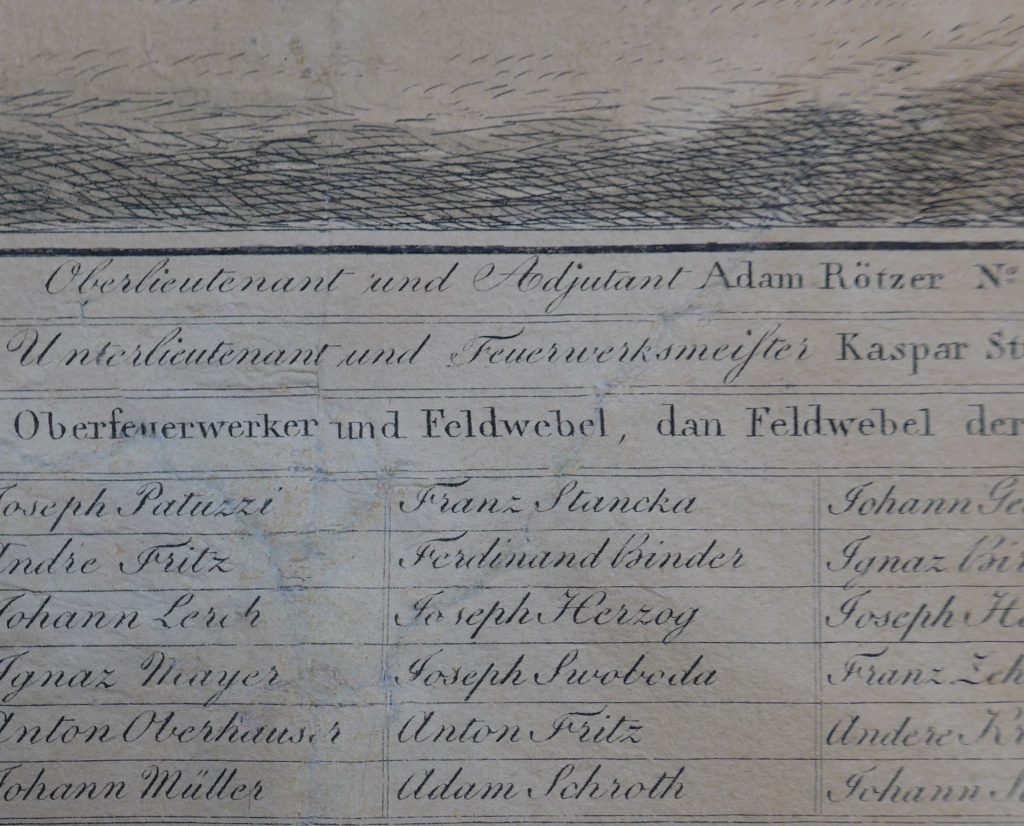 Oberlieutenant und Adjutant Adam Rötzer Nº
Unterlieutenant und Feuerwerksmeiſter Kaspar
Oberfeuerwerker und Feldwebel, dan Feldwebel der
Joseph Patuzzi Franz Stancka Johann
Andre Fritz Ferdinand Binder Ignaz
Johann Lerch Joseph Herzog Joseph
Ignaz Mayer Joseph Swoboda Franz
Anton Oberhauser Anton Fritz Andere
Johann Müller Adam Schroth Johann